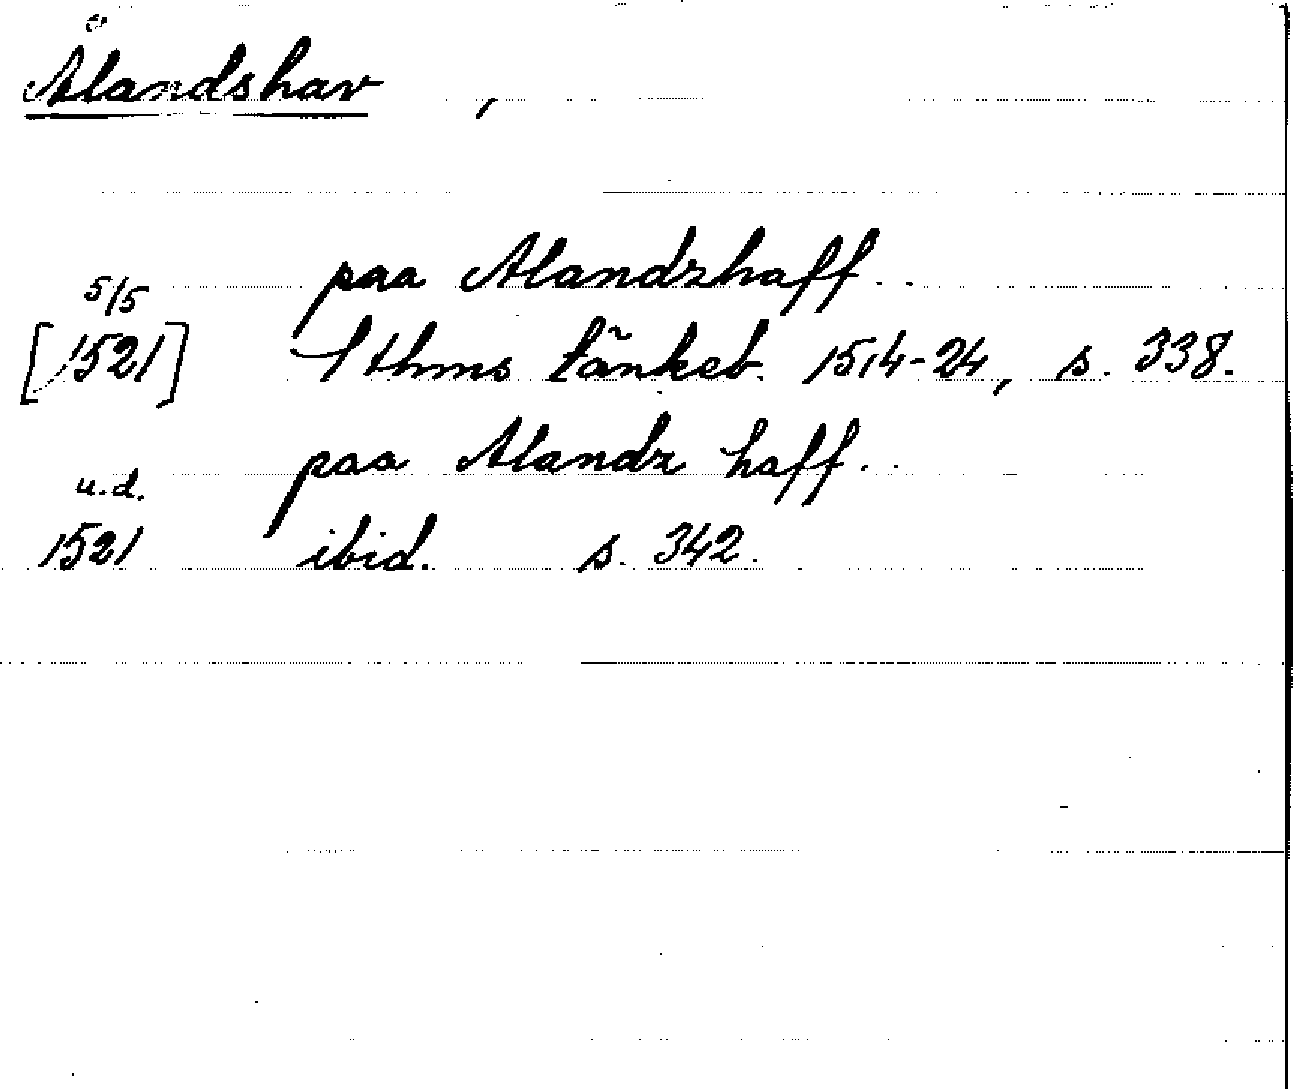 Ålandshav ,
paa Alandzhaff. .
5/5
[1521] Sthms tänkeb. 1514-24, s. 338.
paa Alandz haff. .
u.d.
1521 ibid. s. 342.